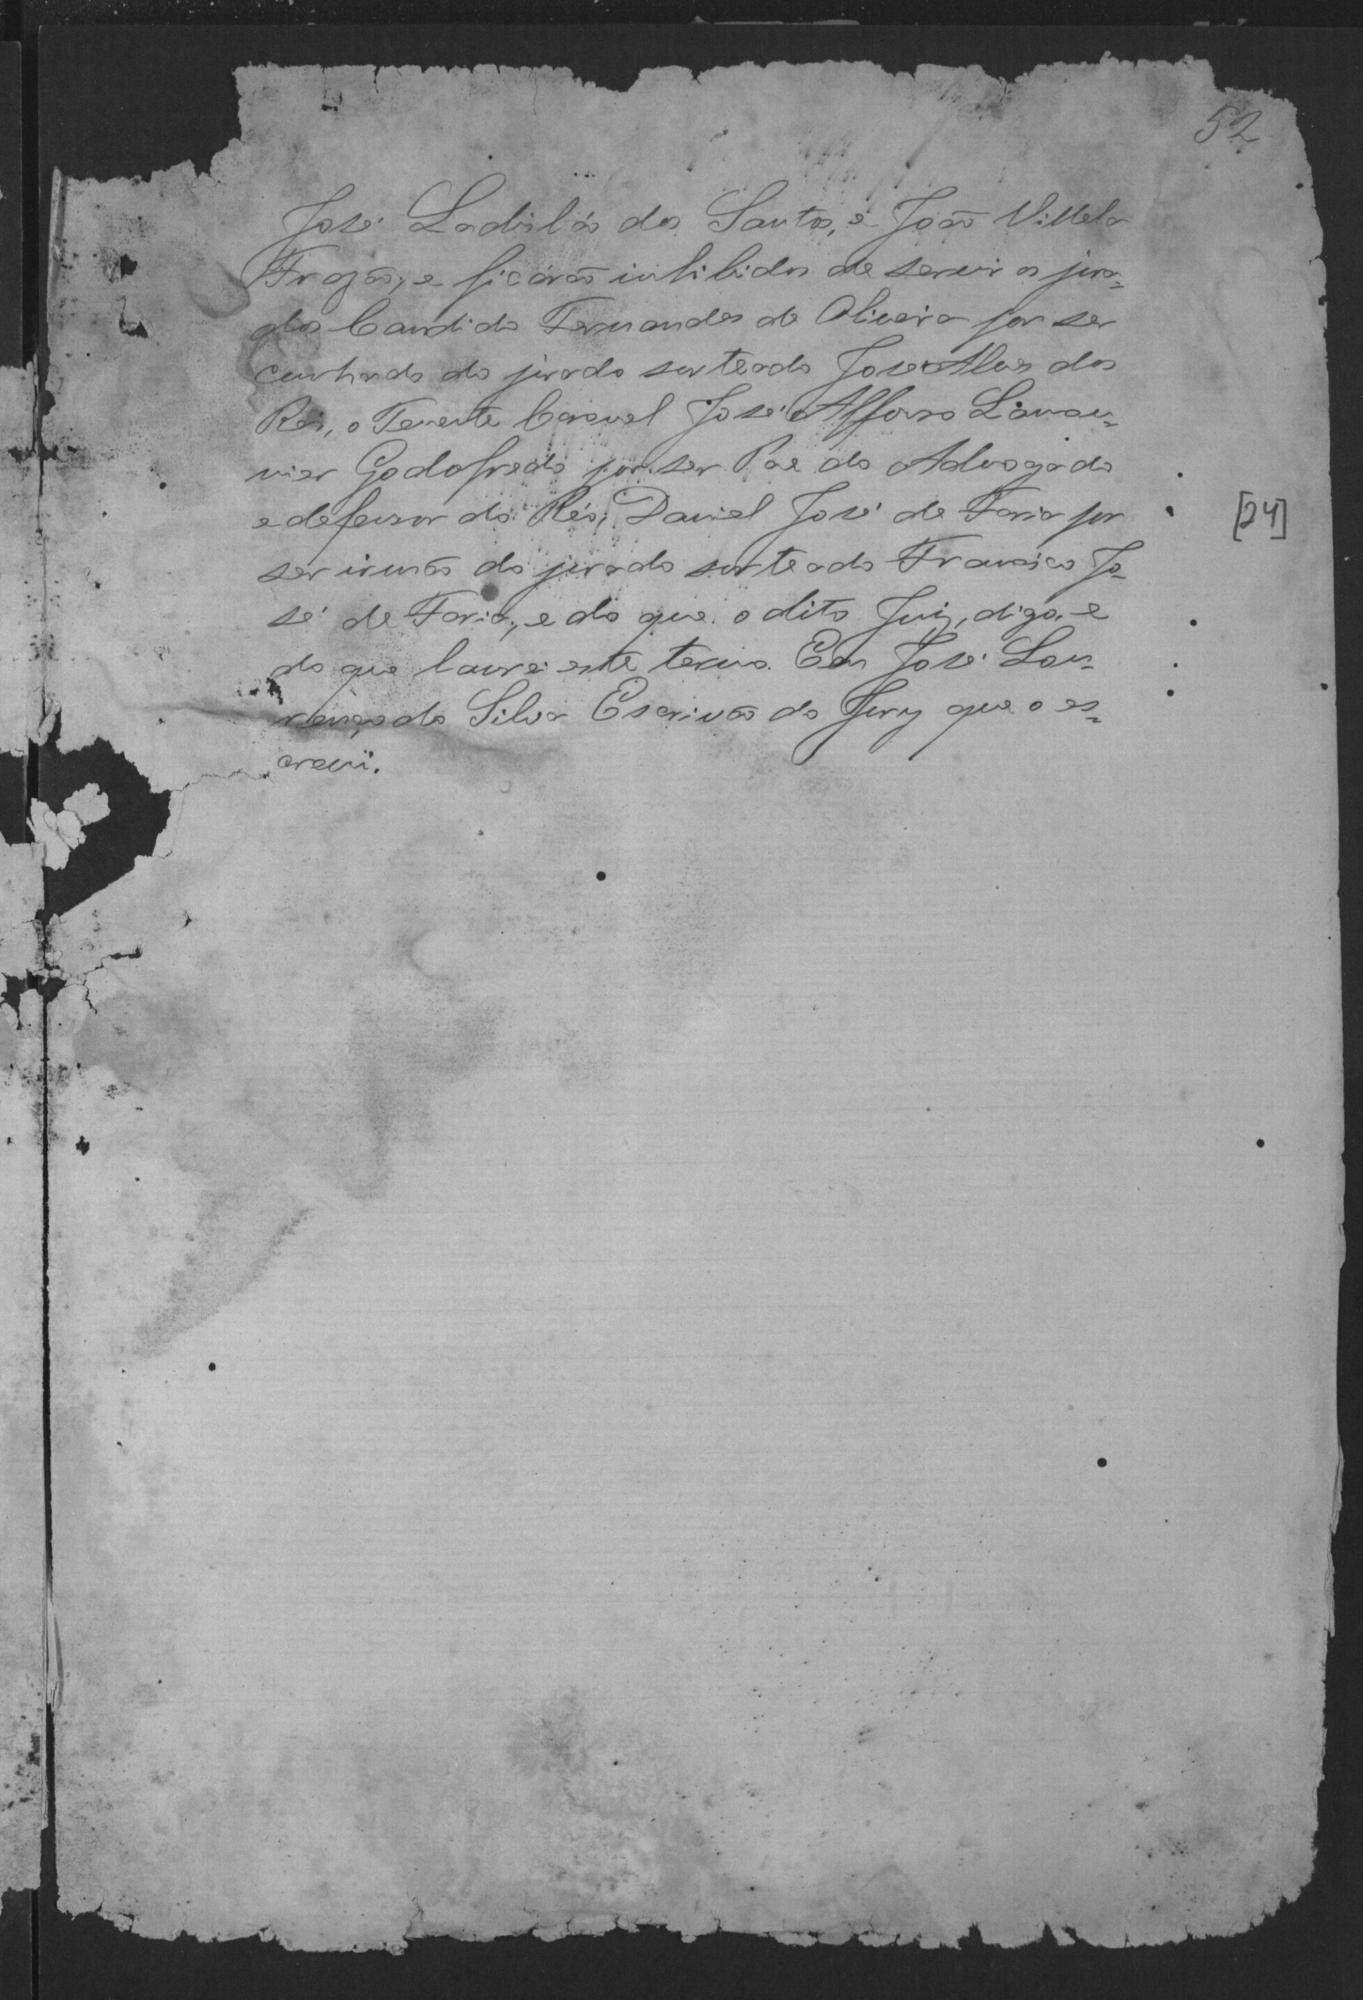 52
José Ladisláo dos Santos, e João Villela
Frazão, e ficárão inhibidos de servir os jura=
dos Candido Fernandes de Oliveira por ser
cunhado do jurado sorteado José Alves dos
Reis, o Tenente Coronel José Affonso
Godofredo por ser Pae do Advogado
e defensor do Réo, Daniel José de Faria por
ser irmão do jurado sorteado Francisco Jo-
sé de Faria, e do que o dito Juiz, digo, e
do que lavrei este termo. Eu José Lou=
renço da Silva Escrivão do Jury que o es=
crevi.
[24]